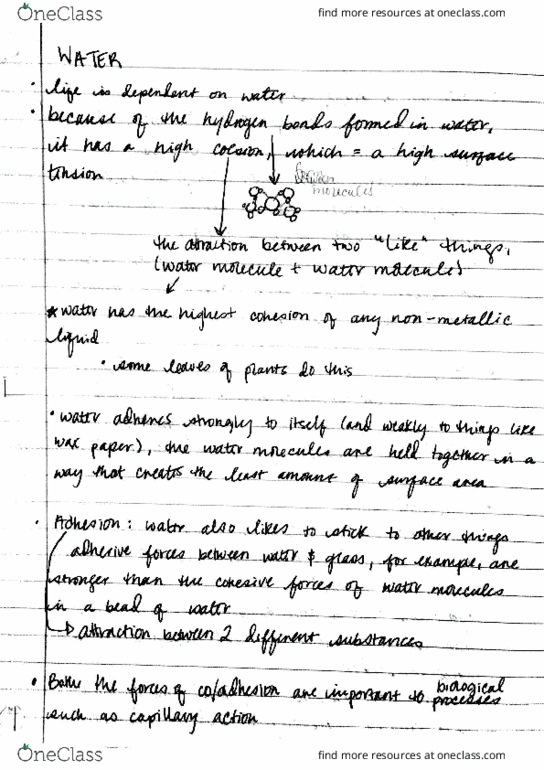 OneClass
find more resources at oneclass.com
WATER
• life is dependent on water
• because of the hydrogen bonds formed in water,
it has a high coesion, which = a high surface
tension
molecules
the attraction between two "like" things,
(water molecule + water molecule)
★ water has the highest cohesion of any non-metallic
liquid
• some leaves of plants do this
• water adheres strongly to itself (and weakly to things like
wax paper), the water molecules are held together in a
way that creates the least amount of surface area
• Adhesion: water also likes to stick to other things
adhesive forces between water & glass, for example, are
stronger than the cohesive forces of water molecules
in a bead of water
attraction between 2 different substances
• Both the forces of co/adhesion are important to biological processes
such as capillary action
OneClass
find more resources at oneclass.com